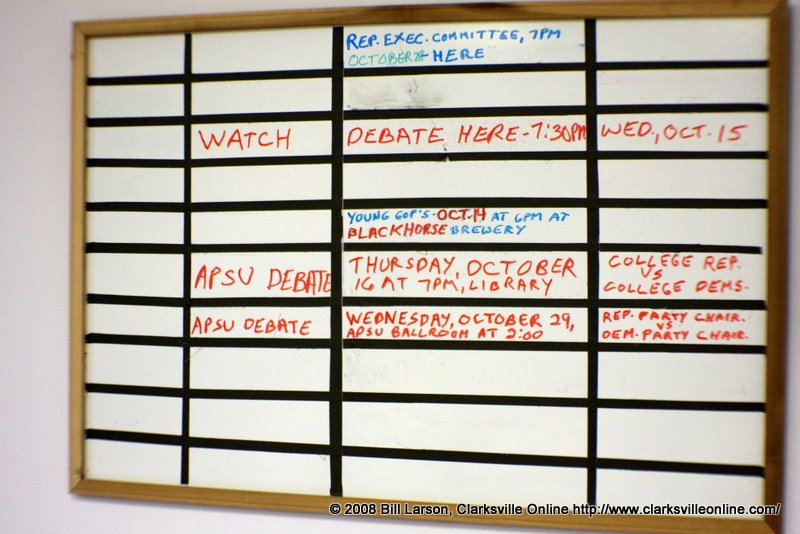 REP. EXEC. COMMITTEE, 7PM
OCTOBER - HERE
WATCH DEBATE HERE - 7:30PM WED., OCT. 15
YOUNG GOP'S - OCT. 14 AT 6PM AT
BLACKHORSE BREWERY
APSU DEBATE THURSDAY, OCTOBER 16 AT 7PM, LIBRARY COLLEGE REP. VS COLLEGE DEMS.
APSU DEBATE WEDNESDAY, OCTOBER 29, APSU BALLROOM AT 2:00 REP. PARTY CHAIR. VS DEM. PARTY CHAIR.
© 2008 Bill Larson, Clarksville Online http://www.clarksvilleonline.com/